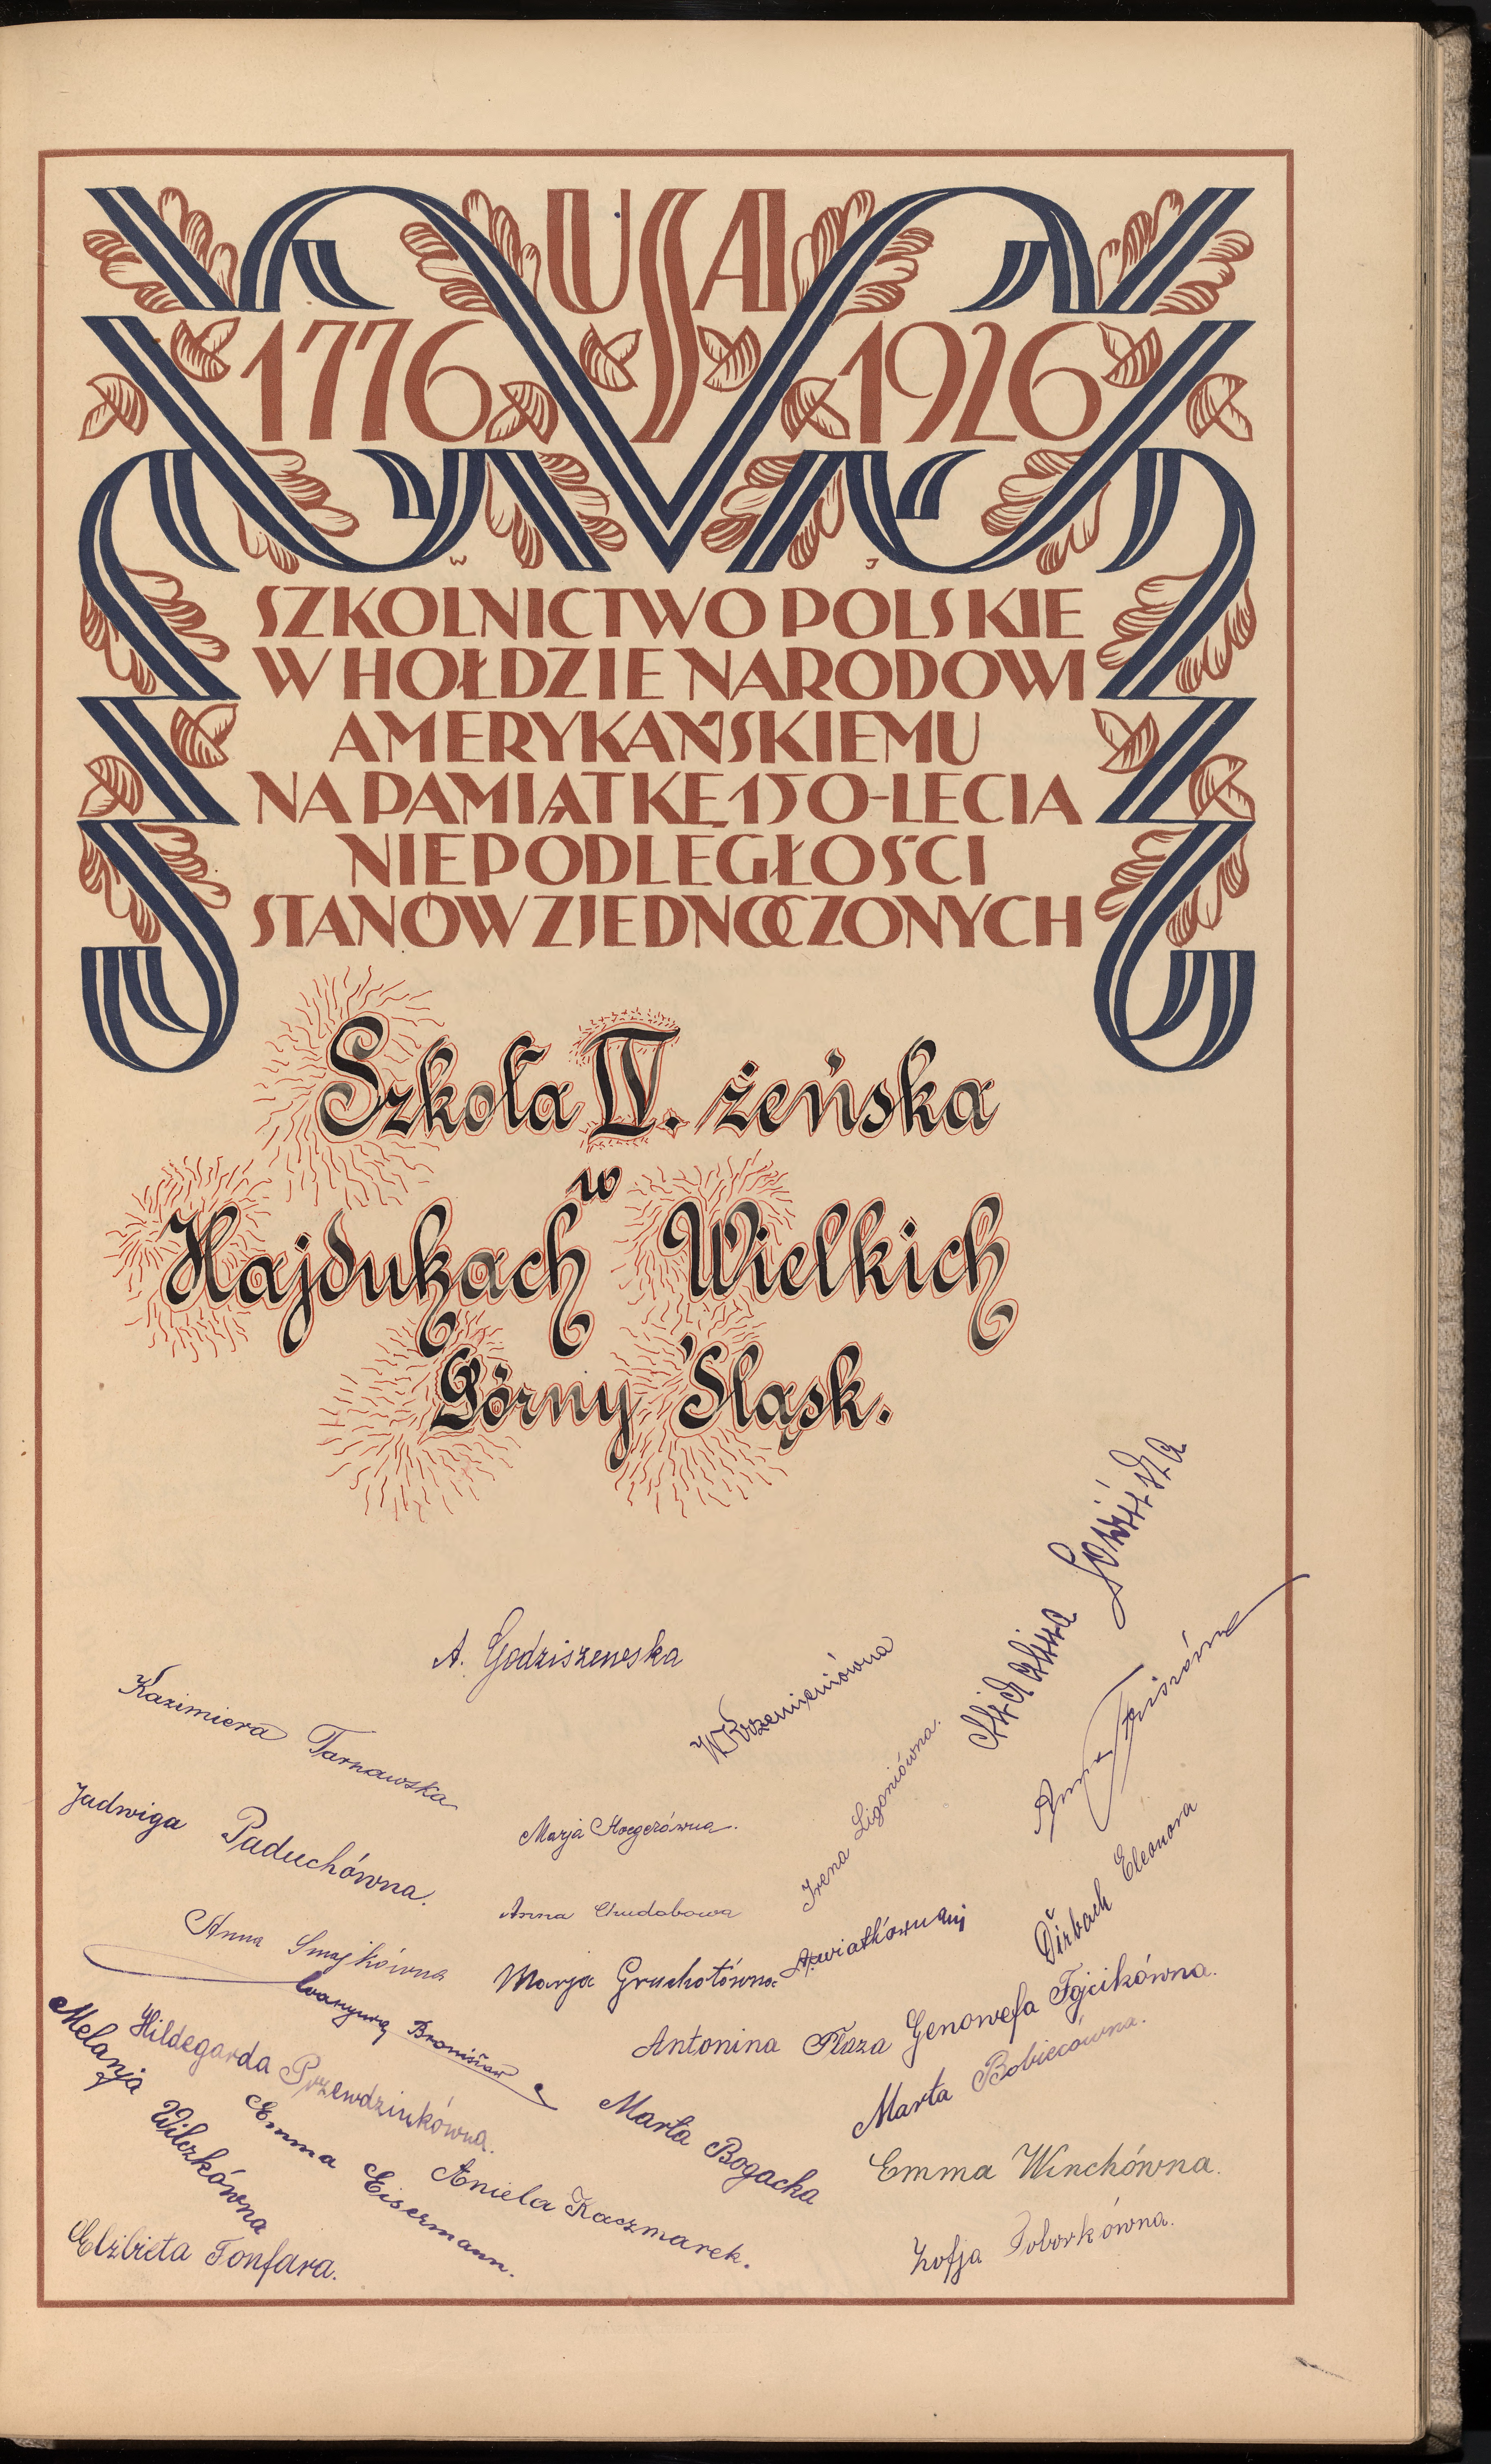 USA
1776 1926
W J
SZKOLNICTWO POLSKIE
W HOŁDZIE NARODOWI
AMERYKAŃSKIEMU
NA PAMIĄTKĘ 150-LECIA
NIEPODLEGŁOŚCI
STANÓW ZJEDNOCZONYCH
Szkoła IV. żeńska
w
Hajdukach Wielkich
Górny Śląsk.
A. Godziszewska
Kazimiera Tarnawska
W Krzemieniówna
Jadwiga Paduchówna.
Marja Hoegerówna.
Irena Ligoniówna.
Anna
Anna Chudobowa
Dirbach Eleonora
Anna Smajkówna
Marja Gruchotówna
Bronisław
Antonina Płaza
Genowefa Fojcikówna.
Hildegarda Przewdzinkówna.
Melanja Wilczkówna
Emma Eisermann.
Aniela Kaczmarek.
Marta Bogacka
Marta Bobiecówna.
Emma Winchówna.
Elżbieta Tonfara.
Zofja Toborkówna.